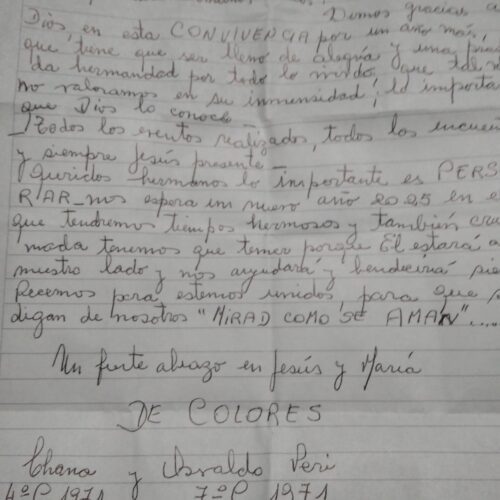 Demos gracias a
Dios, en esta CONVIVENCIA por un año más,
que tiene que ser lleno de alegría y una
da hermandad por todo lo vivido, que tal
no valoramos en su inmensidad, lo importa
que Dios lo conoce
Todos los eventos realizados, todos los encue
y siempre Jesús presente
Queridos hermanos lo importante es PERS
RIAR_nos espera un nuevo año 2025 en e
que tendremos tiempos hermosos y también cru
nada tenemos que temer porque Él estará a
nuestro lado y nos ayudará y bendecirá sie
Recemos para estemos unidos, para que
digan de nosotros "MIRAD COMO SE AMAN"....
Un fuerte abrazo en Jesús y María
DE COLORES
Chana y Osvaldo Peri
4ºP 1971 7ºP 1971